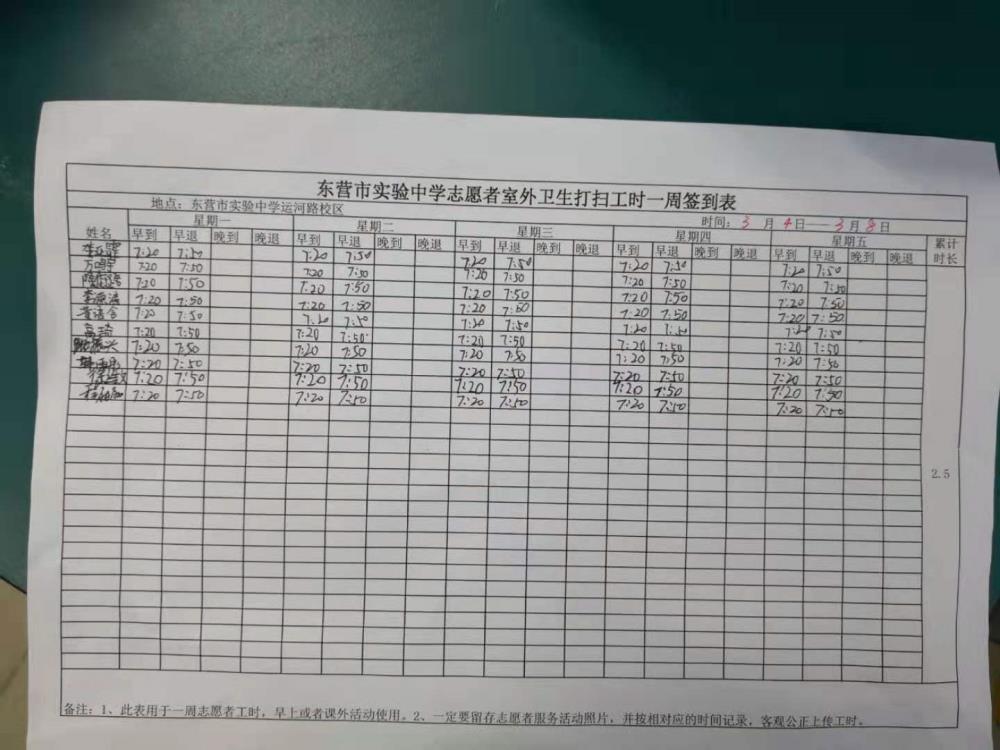 东营市实验中学志愿者室外卫生打扫工时一周签到表
地点：东营市实验中学运河路校区 时间：3 月 4 日——3 月 8 日
姓名 星期一 星期二 星期三 星期四 星期五 累计时长
早到 早退 晚到 晚退 早到 早退 晚到 晚退 早到 早退 晚到 晚退 早到 早退 晚到 晚退 早到 早退 晚到 晚退
7:20 7:50 7:20 7:50 7:20 7:50 7:20 7:50 7:20 7:50
7:20 7:50 7:20 7:50 7:20 7:50 7:20 7:50 7:20 7:50
7:20 7:50 7:20 7:50 7:20 7:50 7:20 7:50 7:20 7:50
7:20 7:50 7:20 7:50 7:20 7:50 7:20 7:50 7:20 7:50
7:20 7:50 7:20 7:50 7:20 7:50 7:20 7:50 7:20 7:50
高琦 7:20 7:50 7:20 7:50 7:20 7:50 7:20 7:50 7:20 7:50
7:20 7:50 7:20 7:50 7:20 7:50 7:20 7:50 7:20 7:50
7:20 7:50 7:20 7:50 7:20 7:50 7:20 7:50 7:20 7:50
7:20 7:50 7:20 7:50 7:20 7:50 7:20 7:50 7:20 7:50
7:20 7:50 7:20 7:50 7:20 7:50 7:20 7:50 7:20 7:50
2.5
备注：1、此表用于一周志愿者工时，早上或者课外活动使用。2、一定要留存志愿者服务活动照片，并按相对应的时间记录，客观公正上传工时。